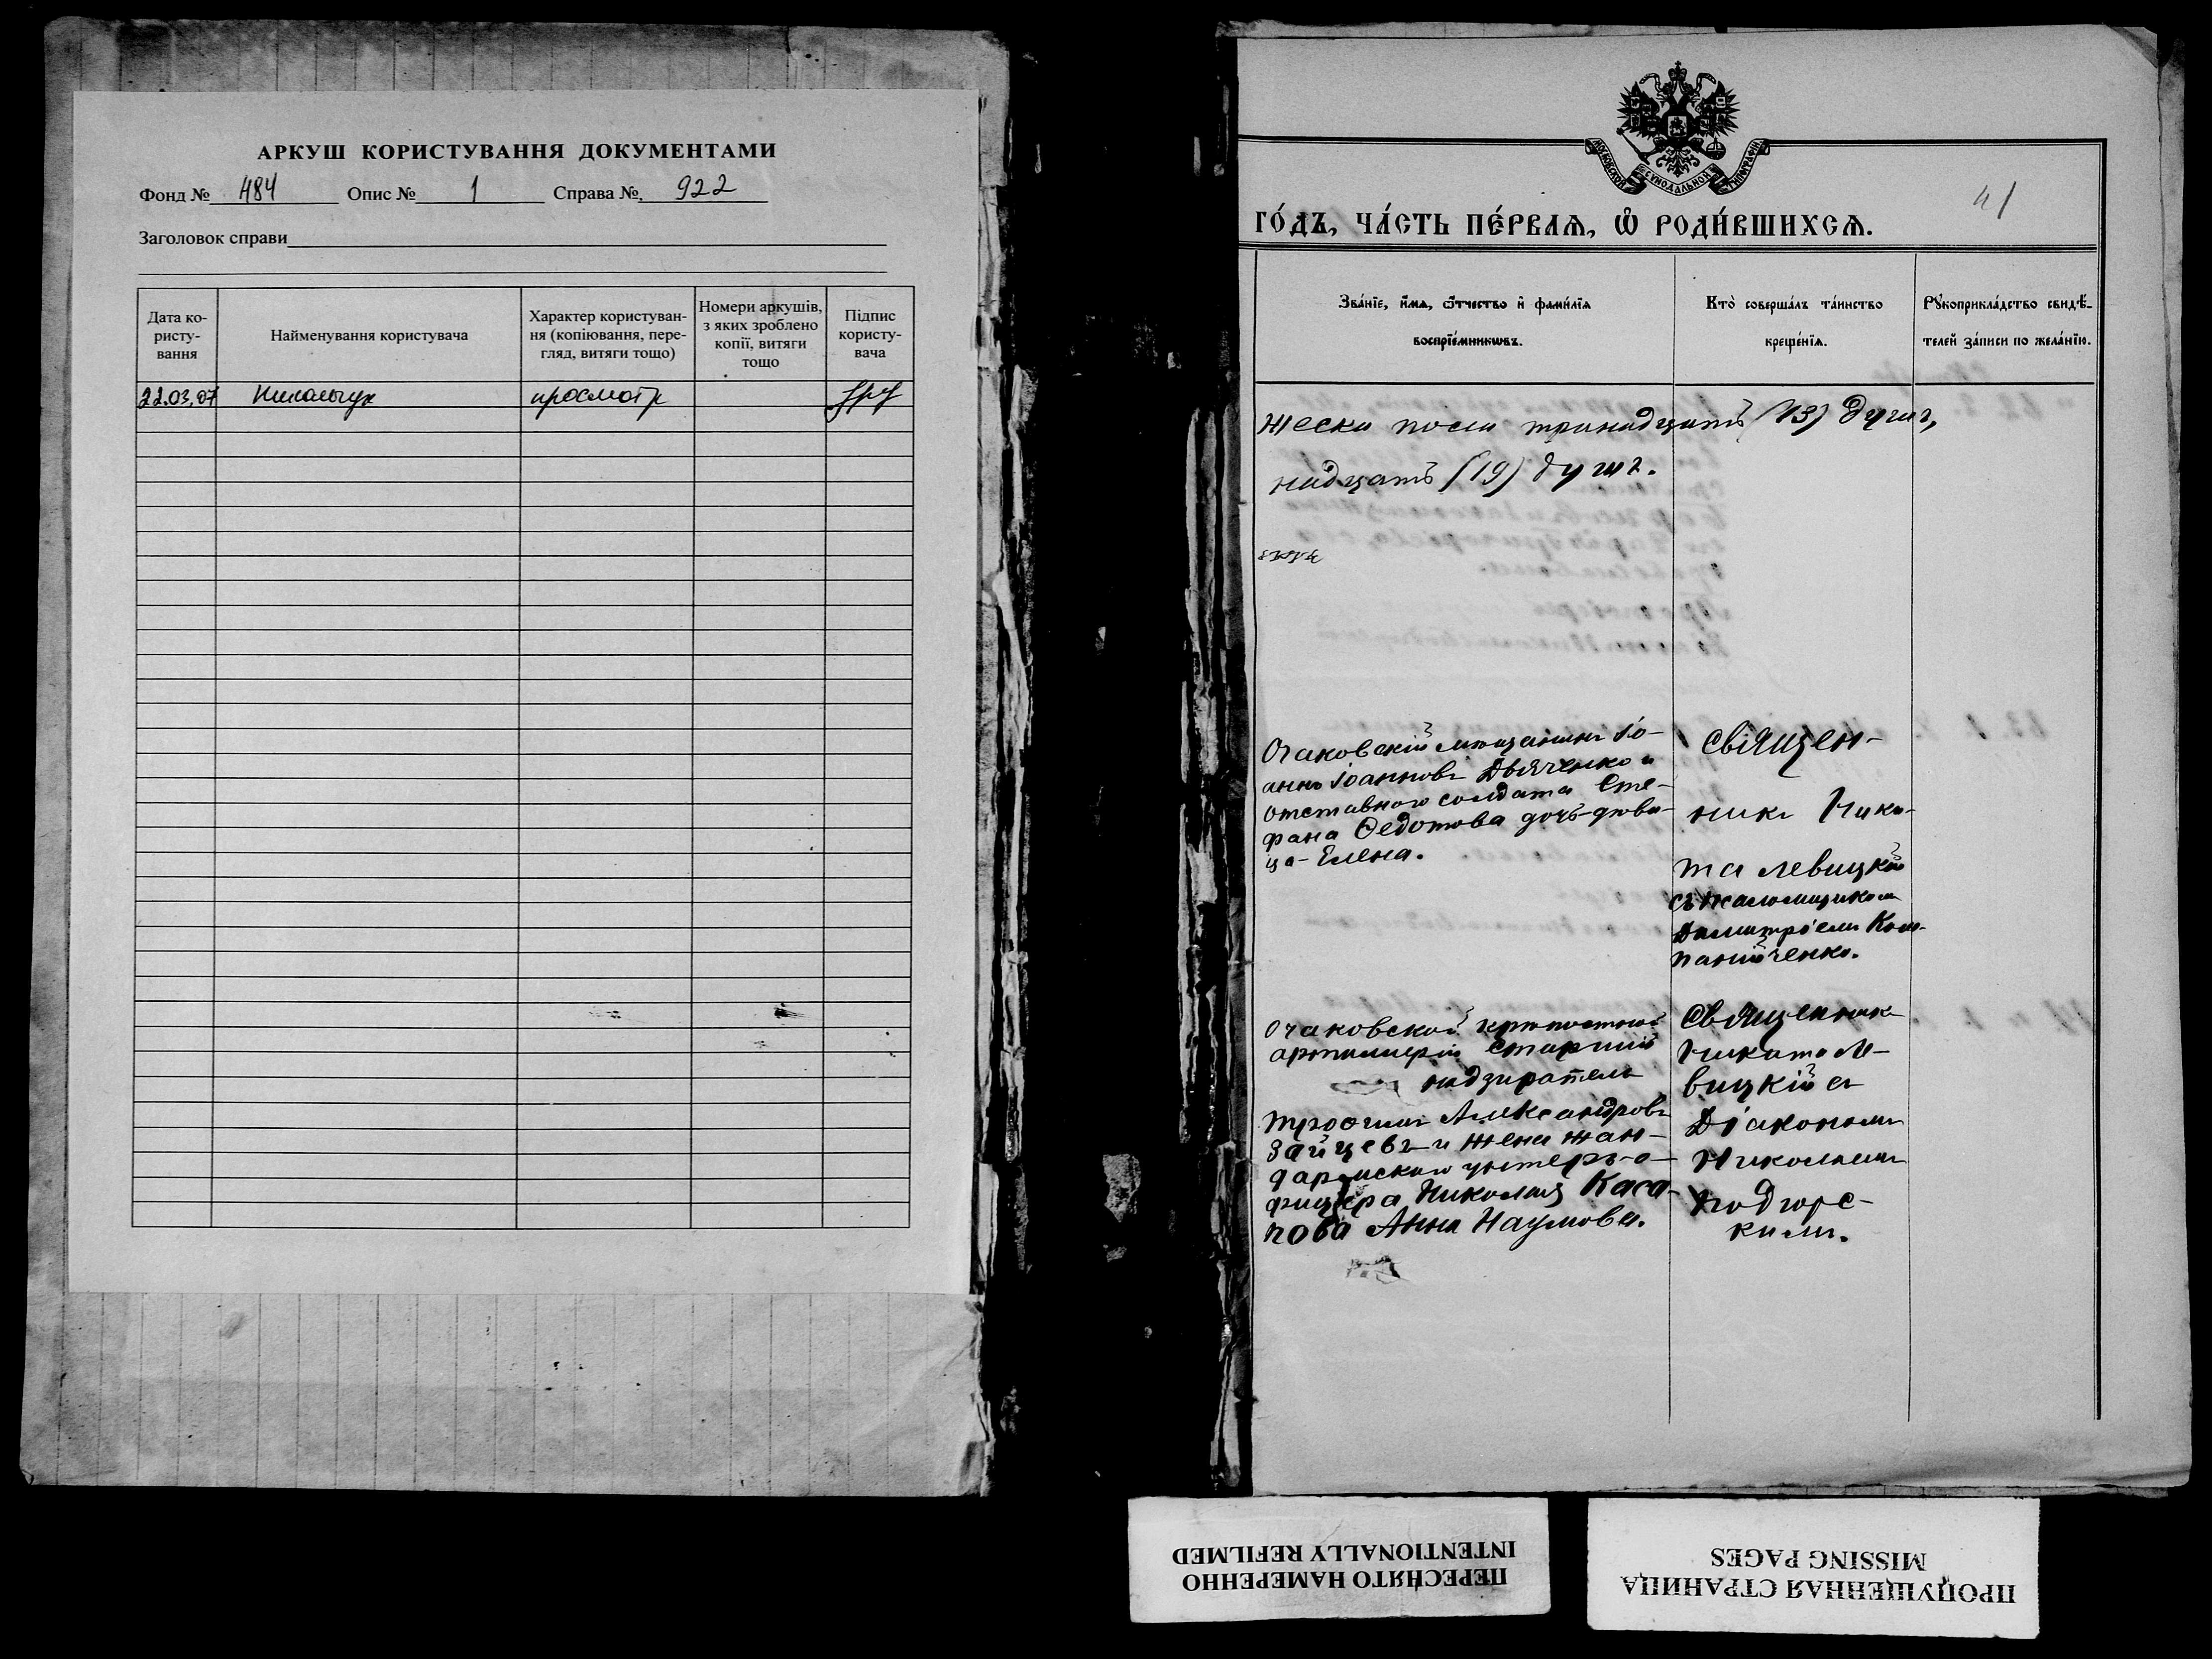 АРКУШ КОРИСТУВАННЯ ДОКУМЕНТАМИ
Фонд № 484 Опис № 1 Справа № 922
Заголовок справи
Дата ко-
ристу-
вання
Найменування користувача
Характер користуван-
ня (копіювання, пере-
гляд, витяги тощо)
Номери аркушів,
з яких зроблено
копії, витяги
тощо
Підпис
користу-
вача
22.03.07 просмотр
МОСКОВСКОЙ СѴНОДАЛЬНОЙ ТИПОГРАФІИ
41
го́дъ, ча́сть пе́рваѧ, ѡ҆ роди́вшихсѧ.
Зва́нїе, и҆́мѧ, ѻ҆́тчество и҆ фами́лїѧ
воспрїе́мникѡвъ.
Кто̀ соверша́лъ та́инство
креще́нїѧ.
Рꙋкоприкла́дство свидѣ́-
телей за́писи по жела́нїю.
жеска пола тринадцать (13) душъ,
надцать (19) душъ.
Очаковскій мѣщанинъ Іо-
аннъ Іоанновъ Дьяченко и
отставного солдата Сте-
фана Федотова дочь-дѣви-
ца-Елена.
Священ-
никъ Ники-
та Левицкій
съ псаломщикомъ
Димитріемъ Ком-
панійченко.
Очаковской крѣпостной
артиллеріи старшій
надзиратель
Трофимъ Александровъ
Зайцевъ и жена жан-
дармскаго унтеръ-о-
фицера Николая Каса-
пова Анна Наумова.
Священникъ
Никита Ле-
вицкій съ
Діакономъ
Николаемъ
Подгорс-
кимъ.
ПЕРЕСНЯТО НАМЕРЕННО
INTENTIONALLY REFILMED
ПРОПУЩЕННАЯ СТРАНИЦА
MISSING PAGES